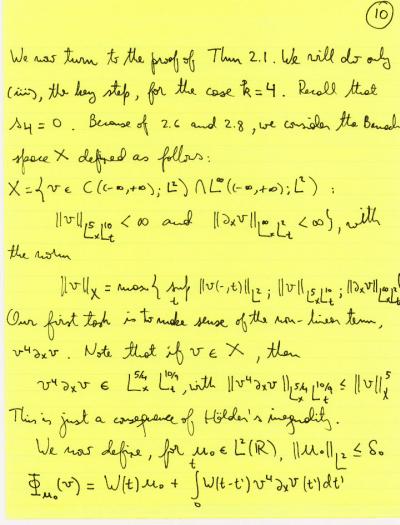 10
We now turn to the proof of Thm 2.1. We will do only
(iii), the key step, for the case k=4. Recall that
s₄ = 0. Because of 2.6 and 2.8, we consider the Banach
space X defined as follows:
X = { v ∈ C((-∞,+∞); L²) ∩ L^∞((-∞,+∞); L²) :
‖v‖_{L_x^5 L_t^{10}} < ∞ and ‖∂_x v‖_{L_x^∞ L_t^2} < ∞}, with
the norm
‖v‖_X = max { sup_t ‖v(-,t)‖_{L²} ; ‖v‖_{L_x^5 L_t^{10}} ; ‖∂_x v‖_{L_x^∞ L_t^2}
Our first task is to make sense of the non-linear term,
v⁴∂_x v. Note that if v ∈ X, then
v⁴∂_x v ∈ L_x^{5/4} L_t^{10/9}, with ‖v⁴∂_x v‖_{L_x^{5/4} L_t^{10/9}} ≤ ‖v‖_X^5
This is just a consequence of Hölder's inequality.
We now define, for u₀ ∈ L²(ℝ), ‖u₀‖_{L²} ≤ δ₀
Φ_{u₀}(v) = W(t)u₀ + ∫_0^t W(t-t') v⁴∂_x v(t') dt'